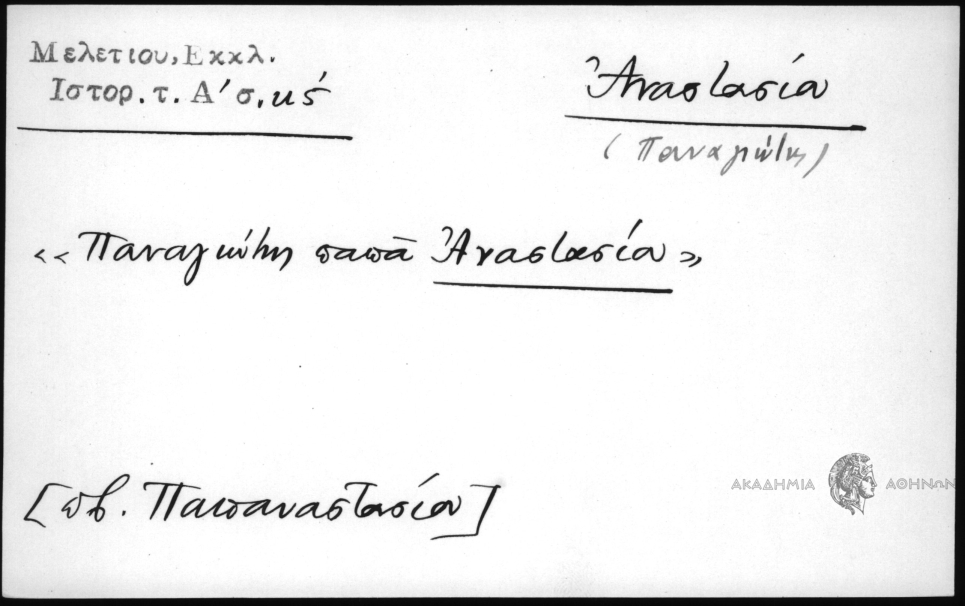 Μελετιου, Εκκλ.
Ιστορ. τ. Α' σ. κς΄
Ἀναστασίου
(Παναγιώτης)
«Παναγιώτης παπᾶ Ἀναστασίου»
[πβ. Παπαναστασίου]
ΑΚΑΔΗΜΙΑ ΑΘΗΝΩΝ